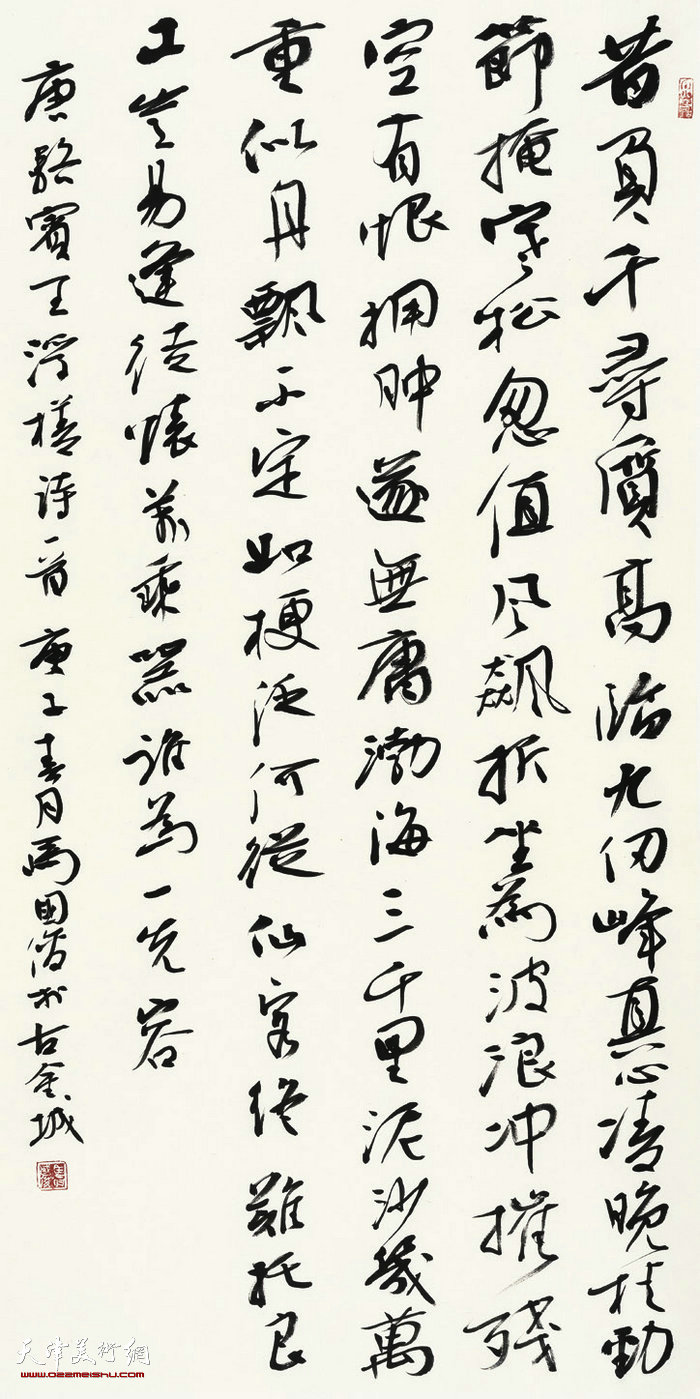 昔負千尋質高临九仞峰真心凌晚桂勁
節掩寒松忽值风飆折坐為波浪冲摧殘
空有恨拥肿遂無庸渤海三千里泥沙幾萬
重似舟飄不定如梗泛何從仙客終難托良
工豈易逢徒懷萬乘器誰為一先容
唐駱賓王浮槎诗一首 庚子春月馬国俊於古金城
天津美術網
www.022meishu.com